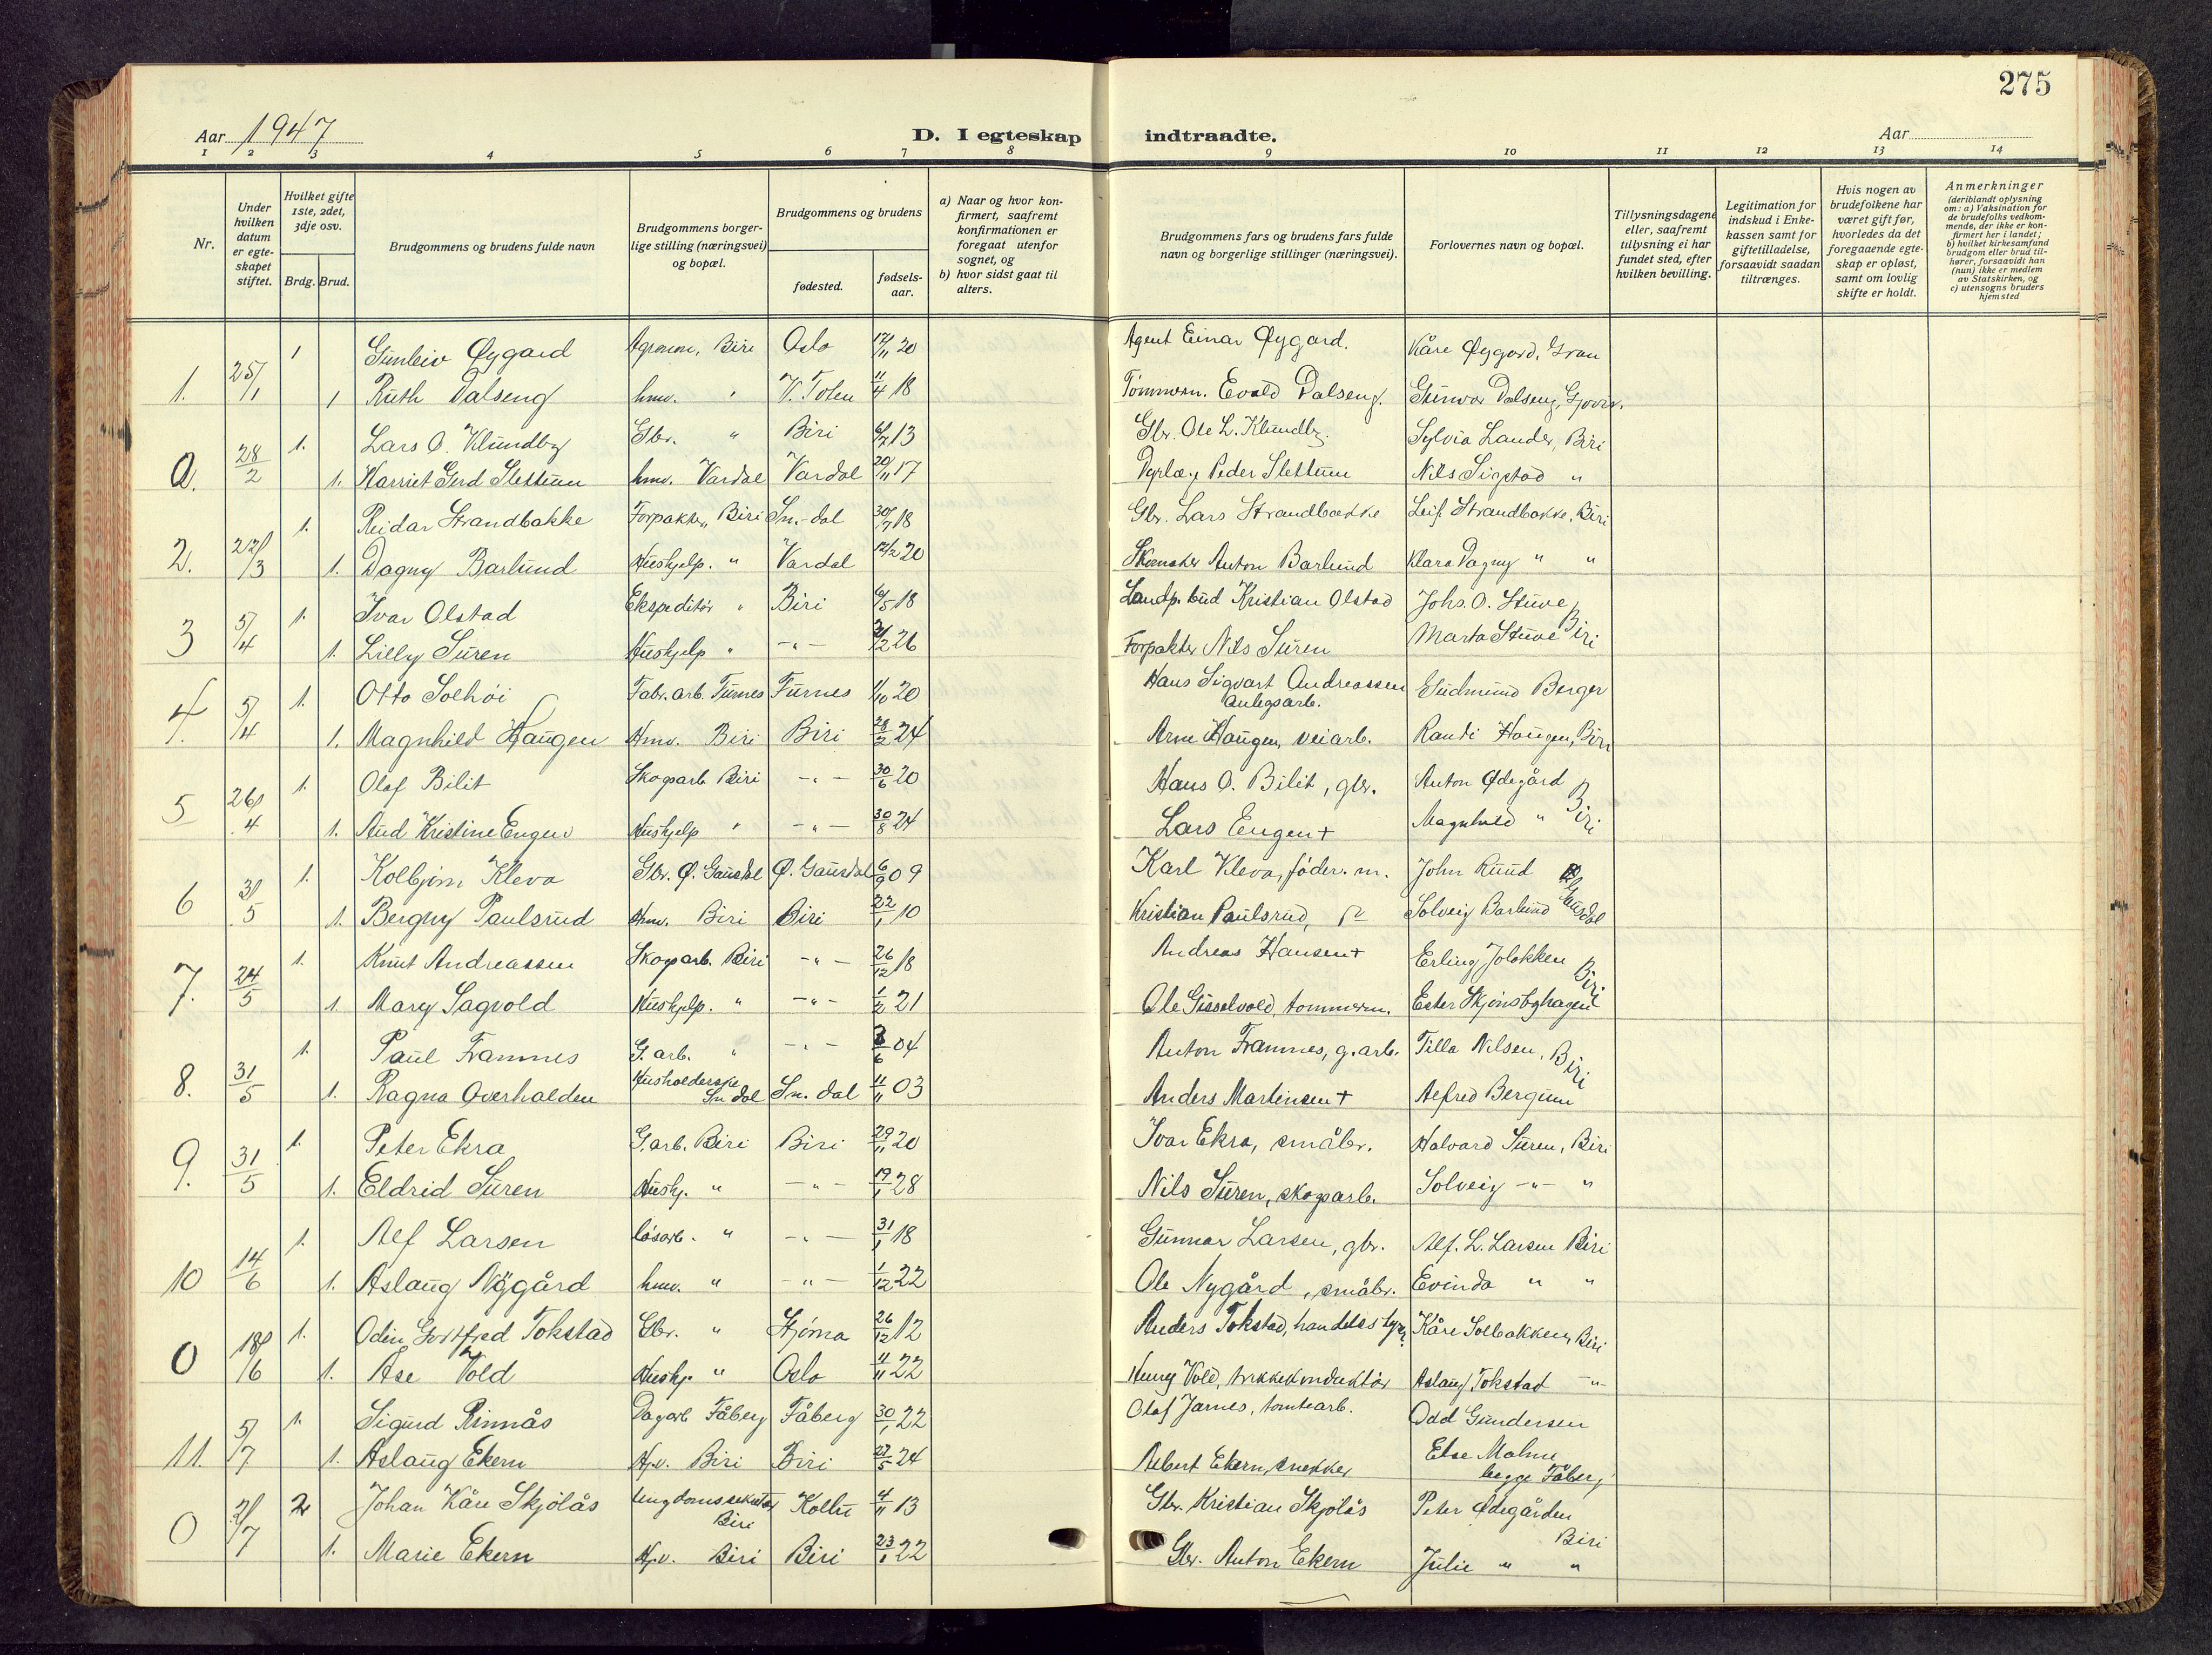 275
Aar 1947
D. I egteskap indtraadte.
Aar
1 2 3 4 5 6 7 8 9 10 11 12 13 14
Nr.
Under hvilken datum er egteskapet stiftet.
Hvilket gifte 1ste, 2det, 3dje osv.
Brdg. Brud.
Brudgommens og brudens fulde navn
Brudgommens borgerlige stilling (næringsvei) og bopæl.
Brudgommens og brudens
fødested.
fødselsaar.
a) Naar og hvor konfirmert, saafremt konfirmationen er foregaat utenfor sognet, og
b) hvor sidst gaat til alters.
Brudgommens fars og brudens fars fulde navn og borgerlige stillinger (næringsvei).
Forlovernes navn og bopæl.
Tillysningsdagene eller, saafremt tillysning ei har fundet sted, efter hvilken bevilling.
Legitimation for indskud i Enkekassen samt for giftetilladelse, forsaavidt saadan tiltrænges.
Hvis nogen av brudefolkene har været gift før, hvorledes da det foregaaende egteskap er opløst, samt om lovlig skifte er holdt.
Anmerkninger (deriblandt oplysning om: a) Vaksination for de brudefolks vedkommende, der ikke er konfirmert her i landet; b) hvilket kirkesamfund brudgom eller brud tilhører, forsaavidt han (hun) ikke er medlem av Statskirken, og c) utensogns bruders hjemsted
1. 25/1 1 Gunleiv Øygard Agronom, Biri Oslo 20 Agent Einar Øygard. Kåre Øygard, Gran
1 Ruth Dalseng hmv. " V. Toten 11/4 18 Tømmerm. Evald Dalseng. Gunvor Dalseng, Gjøvik.
0. 28/2 1. Lars O. Klundby Gbr. " Biri 13 Gbr. Ole L. Klundby. Sylvia Lander, Biri
1. Harriet Gerd Slettum hmv. Vardal Vardal 20/11 17 Dyrlæge Peder Slettum Nils Sigstad "
2. 22/3 1. Reidar Strandbakke Forpakter, Biri Sn.-dal 30/7 18 Gbr. Lars Strandbakke Leif Strandbakke, Biri
1. Dagny Barlund Hushjelp. " Vardal 12/2 20 Skomaker Anton Barlund Klara Dagny " "
3 5/4 1. Ivar Olstad Ekspeditör " Biri 6/5 18 Landp. bud Kristian Olstad Johs. O. Stuve, Biri
1. Lilly Suren Hushjelp " -"- 26 Forpakter Nils Suren Marta Stuve
4. 5/4 1. Otto Solhöi Fabr. arb. Furnes Furnes 1/10 20 Hans Sigvart Andreassen anlegsarb. Gudmund Berger
1. Magnhild Haugen Hmv. Biri Biri 28/2 24 Arne Haugen, veiarb. Randi Haugen, Biri
5 26/4 1. Olaf Bilit Skogsarb Biri -"- 30/6 20 Hans O. Bilit, gbr. Anton Ødegård Biri
1. Aud Kristine Engen Hushjelp " -"- 30/8 24 Lars Engen + Magnhild "
6 31/5 1. Kolbjörn Kleva Gbr. Ø. Gausdal Ø. Gausdal 6/9 09 Karl Kleva, föder. m. John Ruud
1. Bergny Paulsrud Hmv. Biri Biri 22/1 10 Kristian Paulsrud, Solveig Barlund
7. 24/5 1. Knut Andreassen Skogsarb. Biri -"- 26/12 18 Andreas Hansen + Erling Joløkken Biri
1. Mary Sagvold Hushjelp. " -"- 1/2 21 Ole Gisselvold, tommerm. Ester Skjönsbghagen
8. 31/5 1. Paul Framnes G. arb. " -"- 04 Anton Framnes, g.arb. Tilla Nilsen, Biri
1. Ragna Overhalden Husholderske Sn dal Sn. dal 11/11 03 Anders Martinsen + Alfred Bergum
9. 31/5 1. Peter Ekra G. arb. Biri Biri 29/11 20 Ivar Ekra, småbr. Halvard Suren, Biri
1. Eldrid Suren Hushj. " -"- 19/1 28 Nils Suren, skogsarb. Solveig -"- "
10 14/6 1. Alf Larsen lösarb. " -"- 31/1 18 Gunnar Larsen, gbr. Alf. L. Larsen Biri
1. Aslaug Nygård hmv. " -"- 1/12 22 Ole Nygård, småbr. Evinda " "
0 18/6 1. Odin Gottfred Tokstad Gbr. " 26/12 12 Anders Tokstad, handelsstyr. Kåre Solbakken, Biri
1. Åse Vold Hushj. " Oslo 4/11 22 Henry Vold, trikkekonduktör Aslaug Tokstad -"-
11. 5/7 1. Sigurd Rinnås Dagarb Fåberg Fåberg 30/1 22 Olaf Jarnes, tomtearb. Odd Gundersen
1. Aslaug Ekern Hj.v. Biri Biri 27/5 24 Albert Ekern, snekker Else Malme begge Fåberg
0 2/7 2 Johan Kåre Skjölås Ungdomssekretær Biri Kolbu 4/11 13 Gbr. Kristian Skjölås Peter Ødegården Biri
1. Marie Ekern Hj.v. Biri Biri 23/1 22 Gbr. Anton Ekern Julie " "